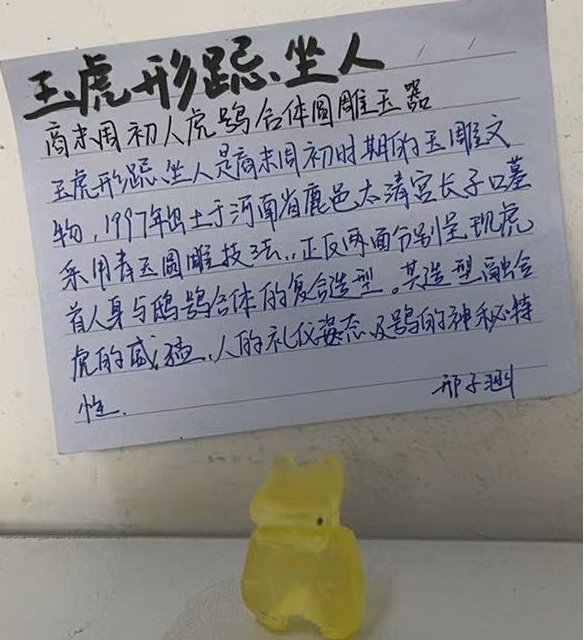 玉虎形跽坐人
商末周初人虎鸮合体圆雕玉器
玉虎形跽坐人是商末周初时期的玉雕文
物,1997年出土于河南省鹿邑太清宫长子口墓
采用青玉圆雕技法,正反两面分别呈现虎
首人身与鸱鸮合体的复合造型。其造型融合
虎的威猛,人的礼仪姿态及鸮的神秘特
性.